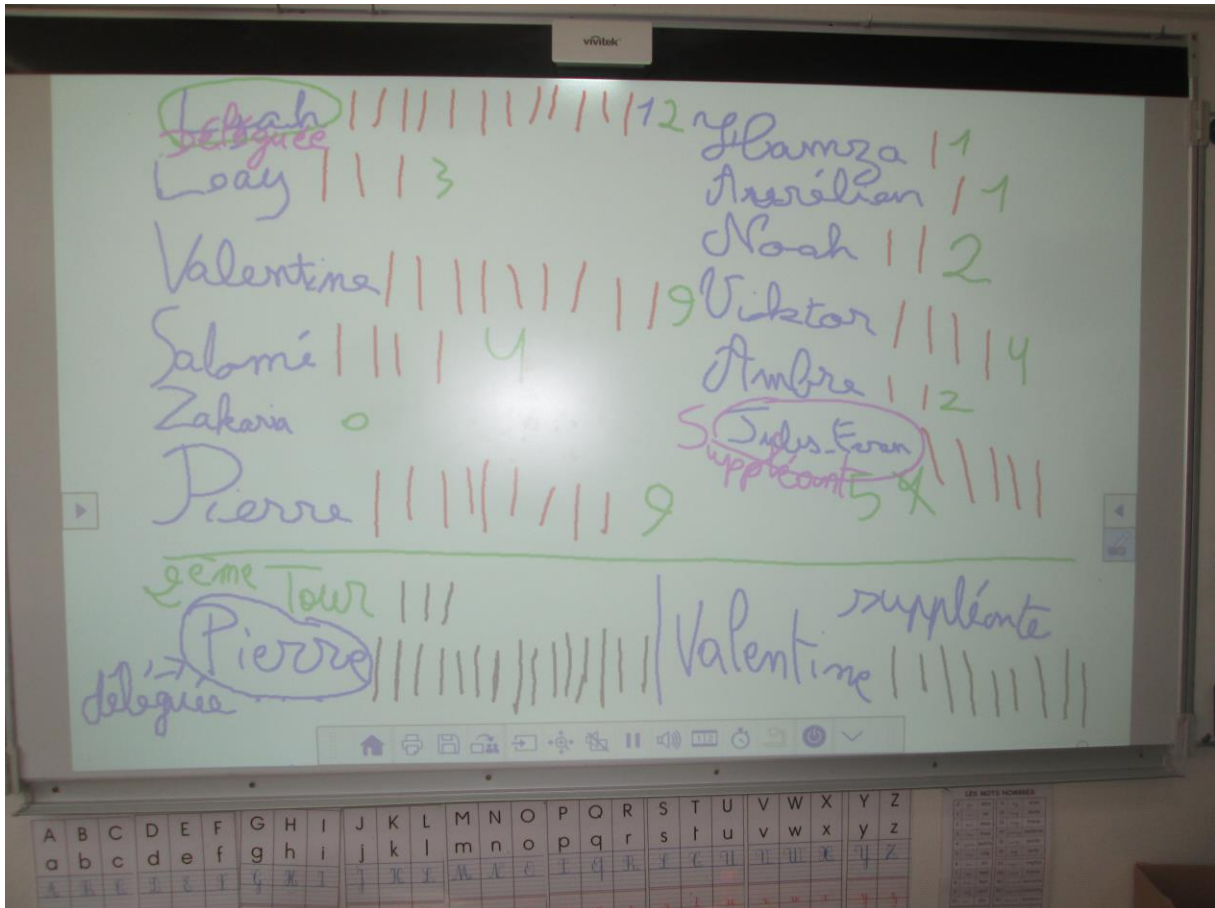 vivitek
Leah 12
Déléguée
Loay 3
Valentine 9
Salomé 4
Zakaria 0
Pierre 9
Hamza 1
Aurélien 1
Noah 2
Vicktor 4
Ambre 2
Jules-Evan
Suppléant 5
2ème Tour
Pierre
déléguée
Valentine
suppléante
A B C D E F G H I J K L M N O P Q R S T U V W X Y Z
a b c d e f g h i j k l m n o p q r s t u v w x y z
LES MOTS NOMBRES